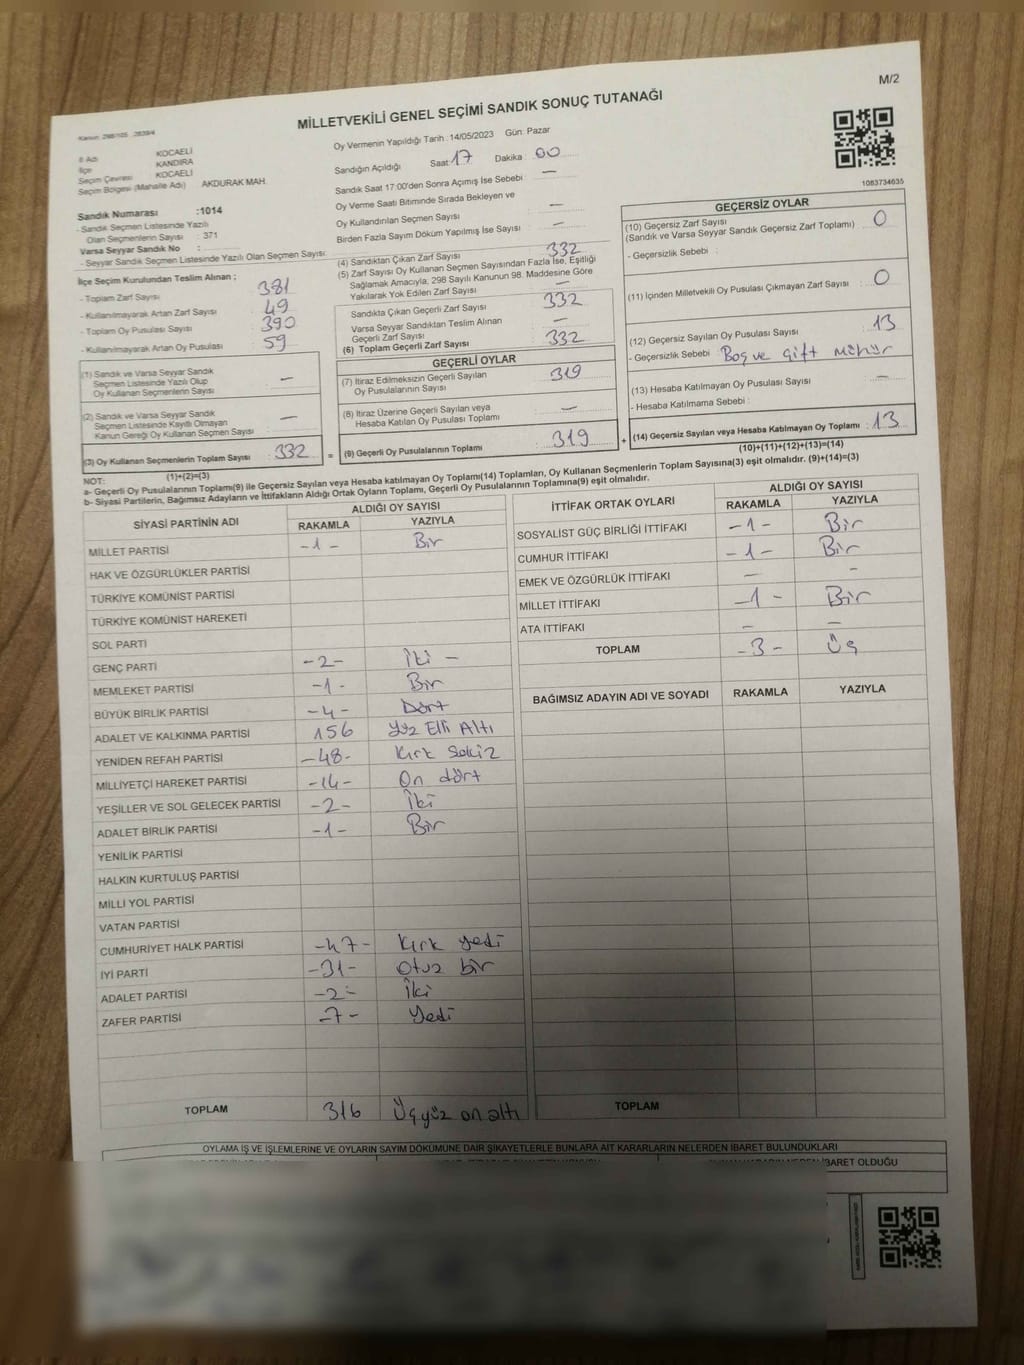 M/2
MİLLETVEKİLİ GENEL SEÇİMİ SANDIK SONUÇ TUTANAĞI
Kanun: 298/105 2839/4
İl Adı KOCAELİ
İlçe KANDIRA
Seçim Çevresi KOCAELİ
Seçim Bölgesi (Mahalle Adı) AKDURAK MAH.
Sandık Numarası :1014
- Sandık Seçmen Listesinde Yazılı
Olan Seçmenlerin Sayısı : 371
Varsa Seyyar Sandık No :
- Seyyar Sandık Seçmen Listesinde Yazılı Olan Seçmen Sayısı
İlçe Seçim Kurulundan Teslim Alınan ;
- Toplam Zarf Sayısı : 381
- Kullanılmayarak Artan Zarf Sayısı : 49
- Toplam Oy Pusulası Sayısı : 390
- Kullanılmayarak Artan Oy Pusulası : 59
(1) Sandık ve Varsa Seyyar Sandık
Seçmen Listesinde Yazılı Olup
Oy Kullanan Seçmenlerin Sayısı : —
(2) Sandık ve Varsa Seyyar Sandık
Seçmen Listesinde Kayıtlı Olmayan
Kanun Gereği Oy Kullanan Seçmen Sayısı : —
(3) Oy Kullanan Seçmenlerin Toplam Sayısı : 332 =
(1)+(2)=(3)
Oy Vermenin Yapıldığı Tarih : 14/05/2023 Gün: Pazar
Sandığın Açıldığı Saat 17 Dakika : 00
Sandık Saat 17:00'den Sonra Açımış İse Sebebi : —
Oy Verme Saati Bitiminde Sırada Bekleyen ve
Oy Kullandırılan Seçmen Sayısı : —
Birden Fazla Sayım Döküm Yapılmış İse Sayısı : —
(4) Sandıktan Çıkan Zarf Sayısı : 332
(5) Zarf Sayısı Oy Kullanan Seçmen Sayısından Fazla İse, Eşitliği
Sağlamak Amacıyla, 298 Sayılı Kanunun 98. Maddesine Göre
Yakılarak Yok Edilen Zarf Sayısı : —
Sandıkta Çıkan Geçerli Zarf Sayısı : 332
Varsa Seyyar Sandıktan Teslim Alınan
Geçerli Zarf Sayısı : —
(6) Toplam Geçerli Zarf Sayısı : 332
GEÇERLİ OYLAR
(7) İtiraz Edilmeksizin Geçerli Sayılan
Oy Pusulalarının Sayısı : 319
(8) İtiraz Üzerine Geçerli Sayılan veya
Hesaba Katılan Oy Pusulası Toplamı : —
(9) Geçerli Oy Pusulalarının Toplamı : 319 +
1083734635
GEÇERSİZ OYLAR
(10) Geçersiz Zarf Sayısı
(Sandık ve Varsa Seyyar Sandık Geçersiz Zarf Toplamı) : 0
- Geçersizlik Sebebi :
(11) İçinden Milletvekili Oy Pusulası Çıkmayan Zarf Sayısı : 0
(12) Geçersiz Sayılan Oy Pusulası Sayısı : 13
- Geçersizlik Sebebi : Boş ve çift mühür
(13) Hesaba Katılmayan Oy Pusulası Sayısı : —
- Hesaba Katılmama Sebebi :
(14) Geçersiz Sayılan veya Hesaba Katılmayan Oy Toplamı : 13
(10)+(11)+(12)+(13)=(14)
NOT:
a- Geçerli Oy Pusulalarının Toplamı(9) ile Geçersiz Sayılan veya Hesaba katılmayan Oy Toplamı(14) Toplamları, Oy Kullanan Seçmenlerin Toplam Sayısına(3) eşit olmalıdır. (9)+(14)=(3)
b- Siyasi Partilerin, Bağımsız Adayların ve İttifakların Aldığı Ortak Oyların Toplamı, Geçerli Oy Pusulalarının Toplamına(9) eşit olmalıdır.
SİYASİ PARTİNİN ADI ALDIĞI OY SAYISI
RAKAMLA YAZIYLA
MİLLET PARTİSİ -1- Bir
HAK VE ÖZGÜRLÜKLER PARTİSİ
TÜRKİYE KOMÜNİST PARTİSİ
TÜRKİYE KOMÜNİST HAREKETİ
SOL PARTİ
GENÇ PARTİ -2- İki -
MEMLEKET PARTİSİ -1- Bir
BÜYÜK BİRLİK PARTİSİ -4- Dört
ADALET VE KALKINMA PARTİSİ 156 Yüz Elli Altı
YENİDEN REFAH PARTİSİ -48- Kırk Sekiz
MİLLİYETÇİ HAREKET PARTİSİ -14- On dört
YEŞİLLER VE SOL GELECEK PARTİSİ -2- İki
ADALET BİRLİK PARTİSİ -1- Bir
YENİLİK PARTİSİ
HALKIN KURTULUŞ PARTİSİ
MİLLİ YOL PARTİSİ
VATAN PARTİSİ
CUMHURİYET HALK PARTİSİ -47- Kırk yedi
İYİ PARTİ -31- Otuz bir
ADALET PARTİSİ -2- İki
ZAFER PARTİSİ -7- Yedi
TOPLAM 316 Üçyüz on altı
İTTİFAK ORTAK OYLARI ALDIĞI OY SAYISI
RAKAMLA YAZIYLA
SOSYALİST GÜÇ BİRLİĞİ İTTİFAKI -1- Bir
CUMHUR İTTİFAKI -1- Bir
EMEK VE ÖZGÜRLÜK İTTİFAKI — -
MİLLET İTTİFAKI -1- Bir
ATA İTTİFAKI — —
TOPLAM -3- Üç
BAĞIMSIZ ADAYIN ADI VE SOYADI RAKAMLA YAZIYLA
TOPLAM
OYLAMA İŞ VE İŞLEMLERİNE VE OYLARIN SAYIM DÖKÜMÜNE DAİR ŞİKAYETLERLE BUNLARA AİT KARARLARIN NELERDEN İBARET BULUNDUKLARI
İBARET OLDUĞU